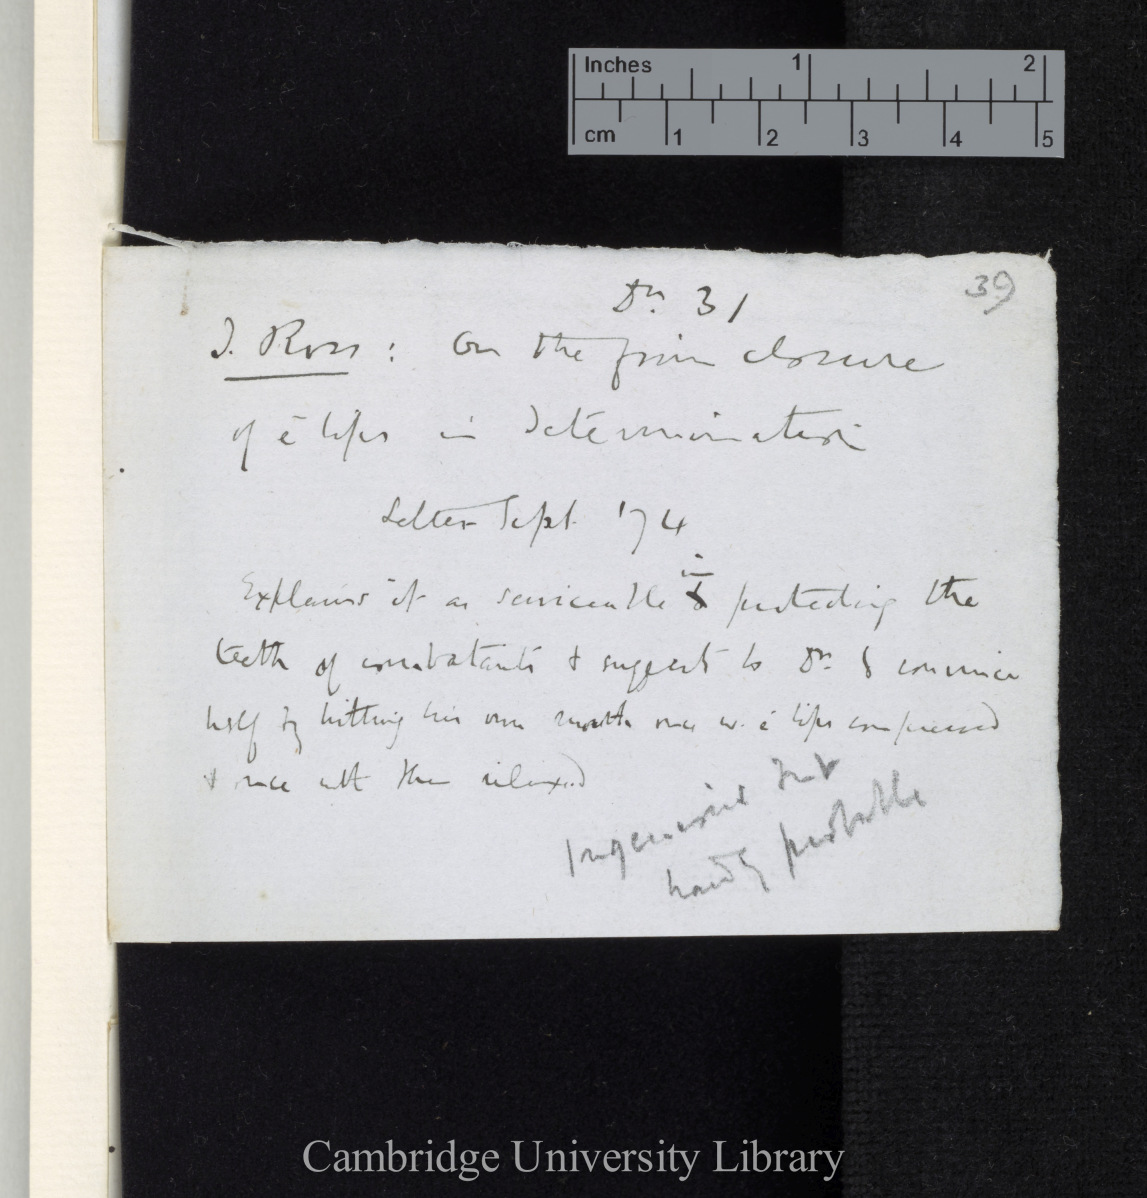 Inches 1 2
cm 1 2 3 4 5
39
Dr. 31
J. Ross: On the firm closure
of ē lips in determination
Letter Sept. '74
Explains it as serviceable in protecting the
teeth of combatants & suggests to Dr. to convince
hself by hitting his own mouth once w. ē lips compressed
& once with them relaxed
Ingenious but
hardly probable
Cambridge University Library